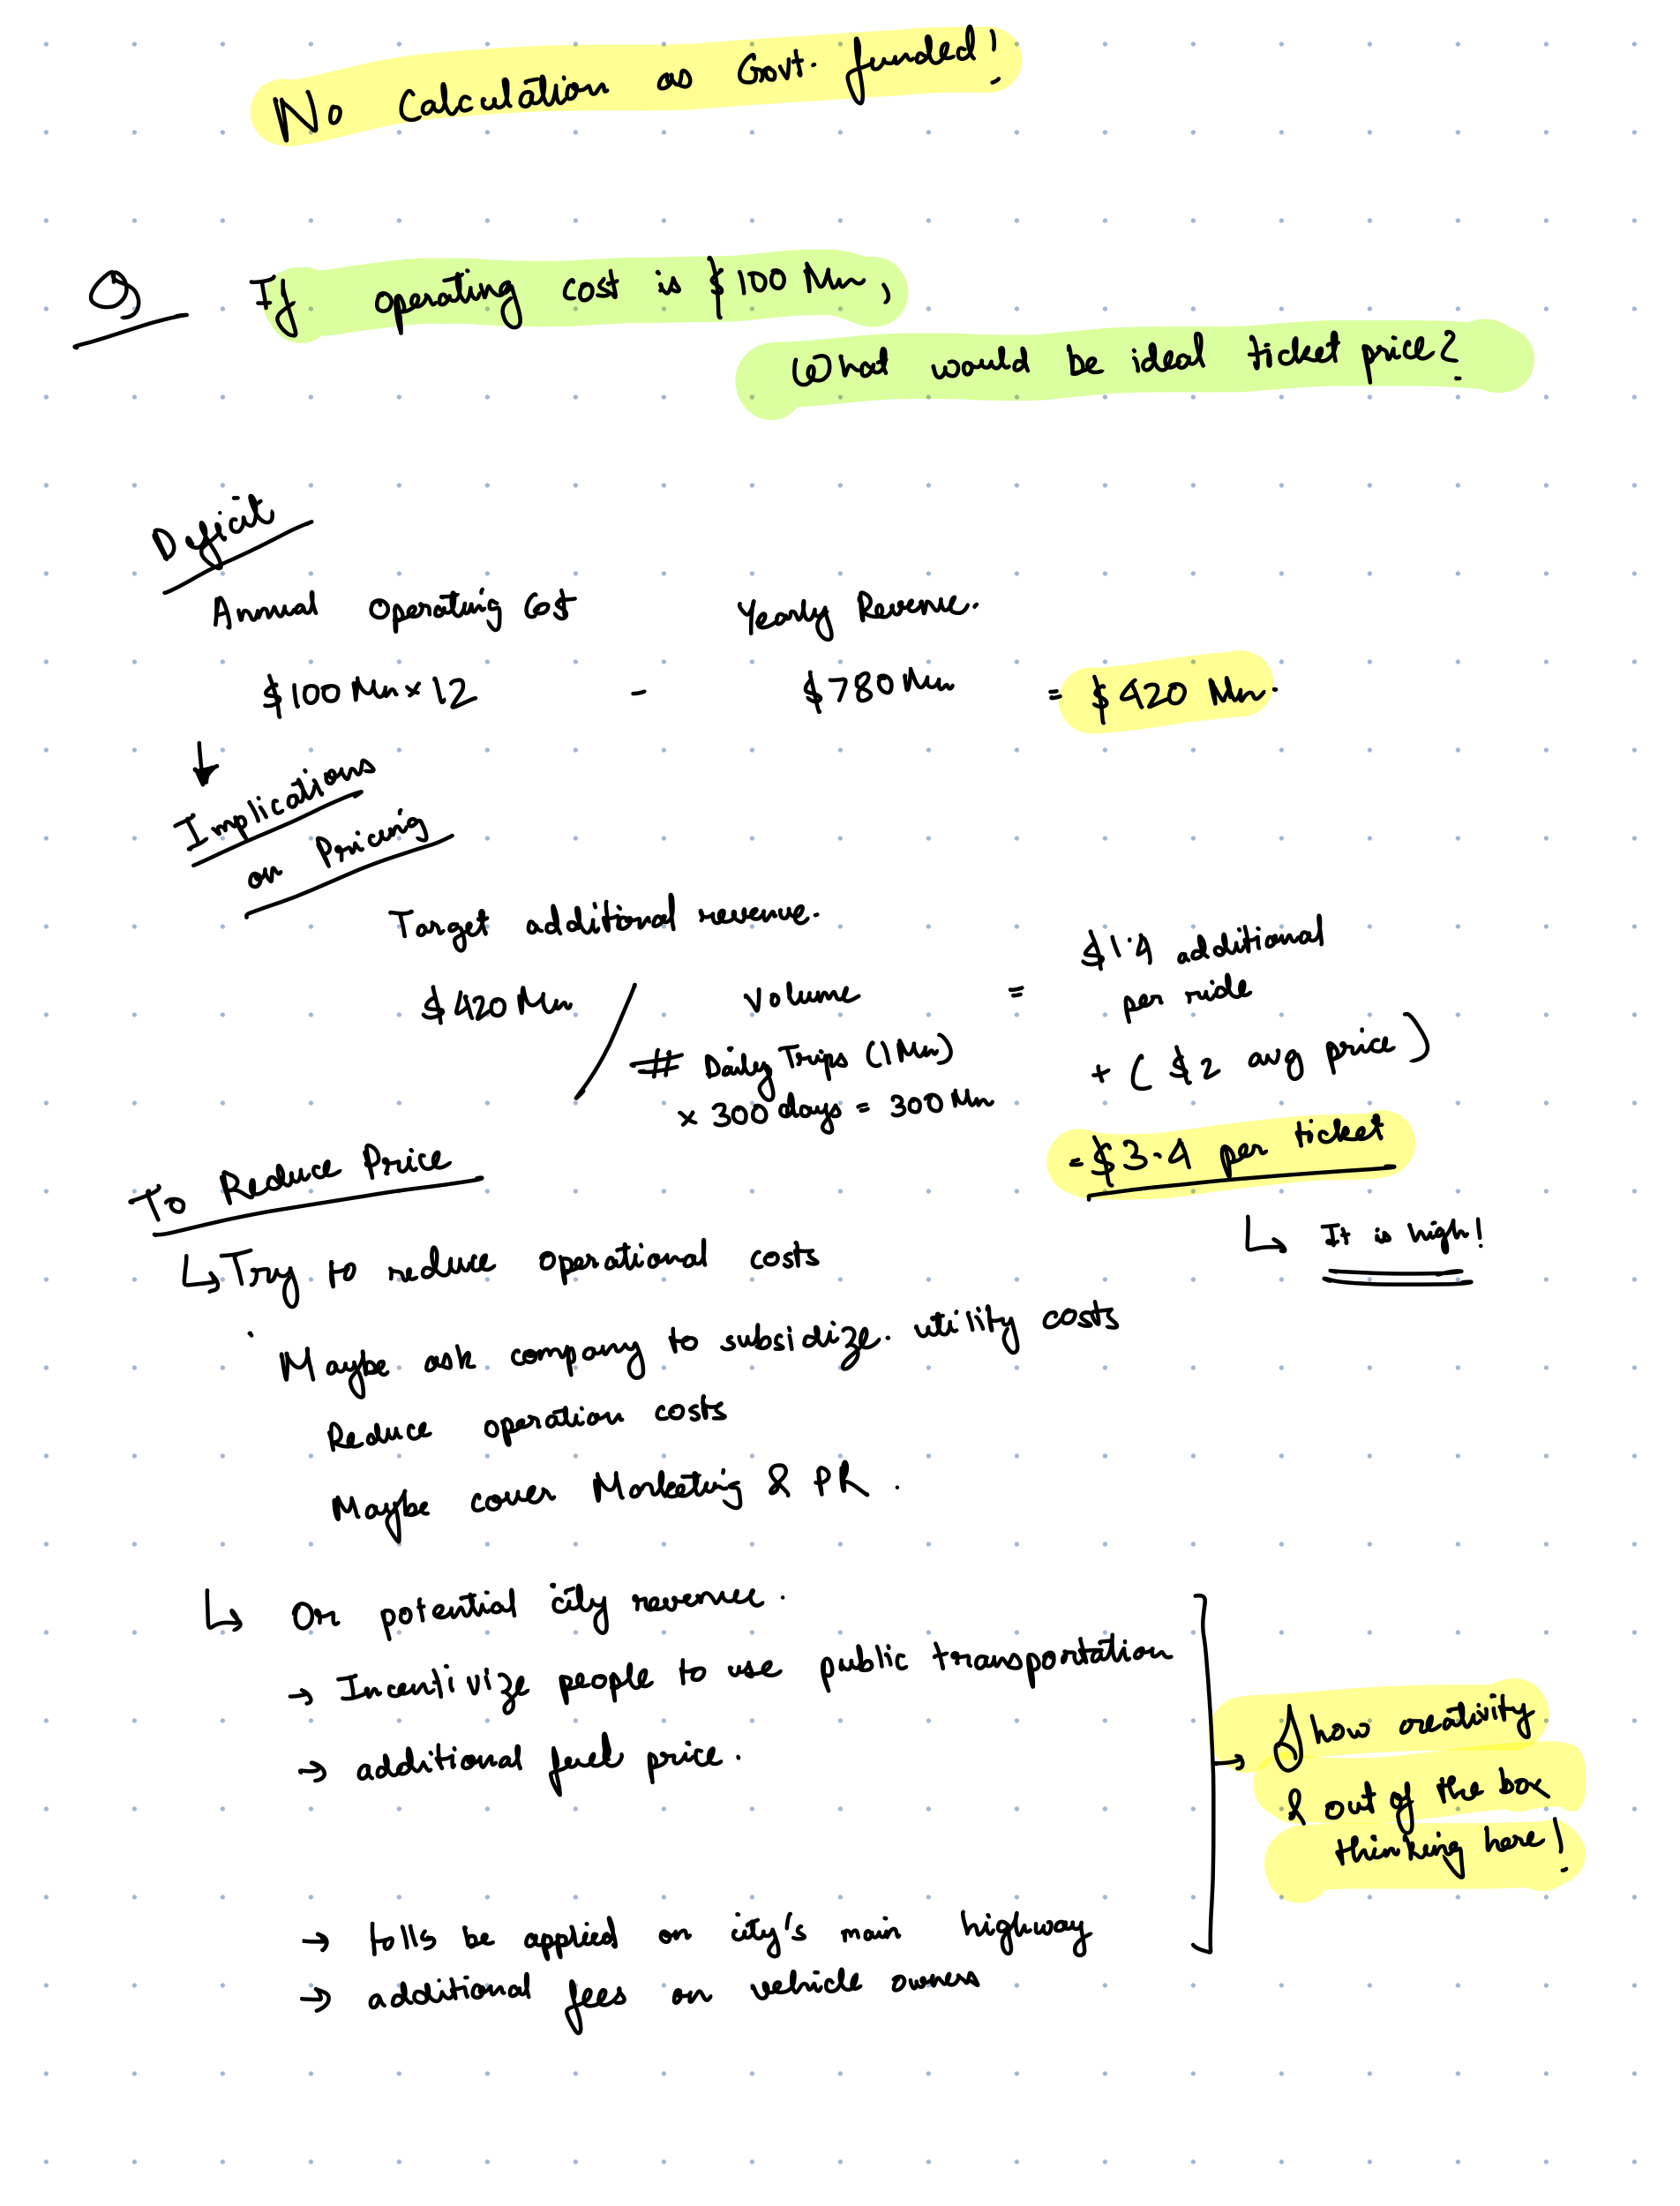 No Calculation as Govt. funded!
Q If operating cost is $100 Mn,
What would be ideal ticket price?
Deficit
Annual Operating Cost Yearly Revenue.
$100 Mn × 12 - $780 Mn = $420 Mn.
↓
Implications
on Pricing
Target additional revenue.
$420 Mn / volume = $1.4 additional
per ride
# Daily Trips (1 Mn)
× 300 days = 300 Mn
+ ($2 avg price)
= $3.4 per ticket
↳ It is high!
To Reduce Price
↳ Try to reduce operational costs
Maybe ask company to subsidize. utility costs
Reduce operation costs
Maybe cover Marketing & PR.
↳ Or potential city revenue.
→ Incentivize people to use public transportation
→ additional fuel price.
→ tolls be applied on city's main highway
→ additional fees on vehicle owners
→ Show creativity
& out of the box
thinking here!